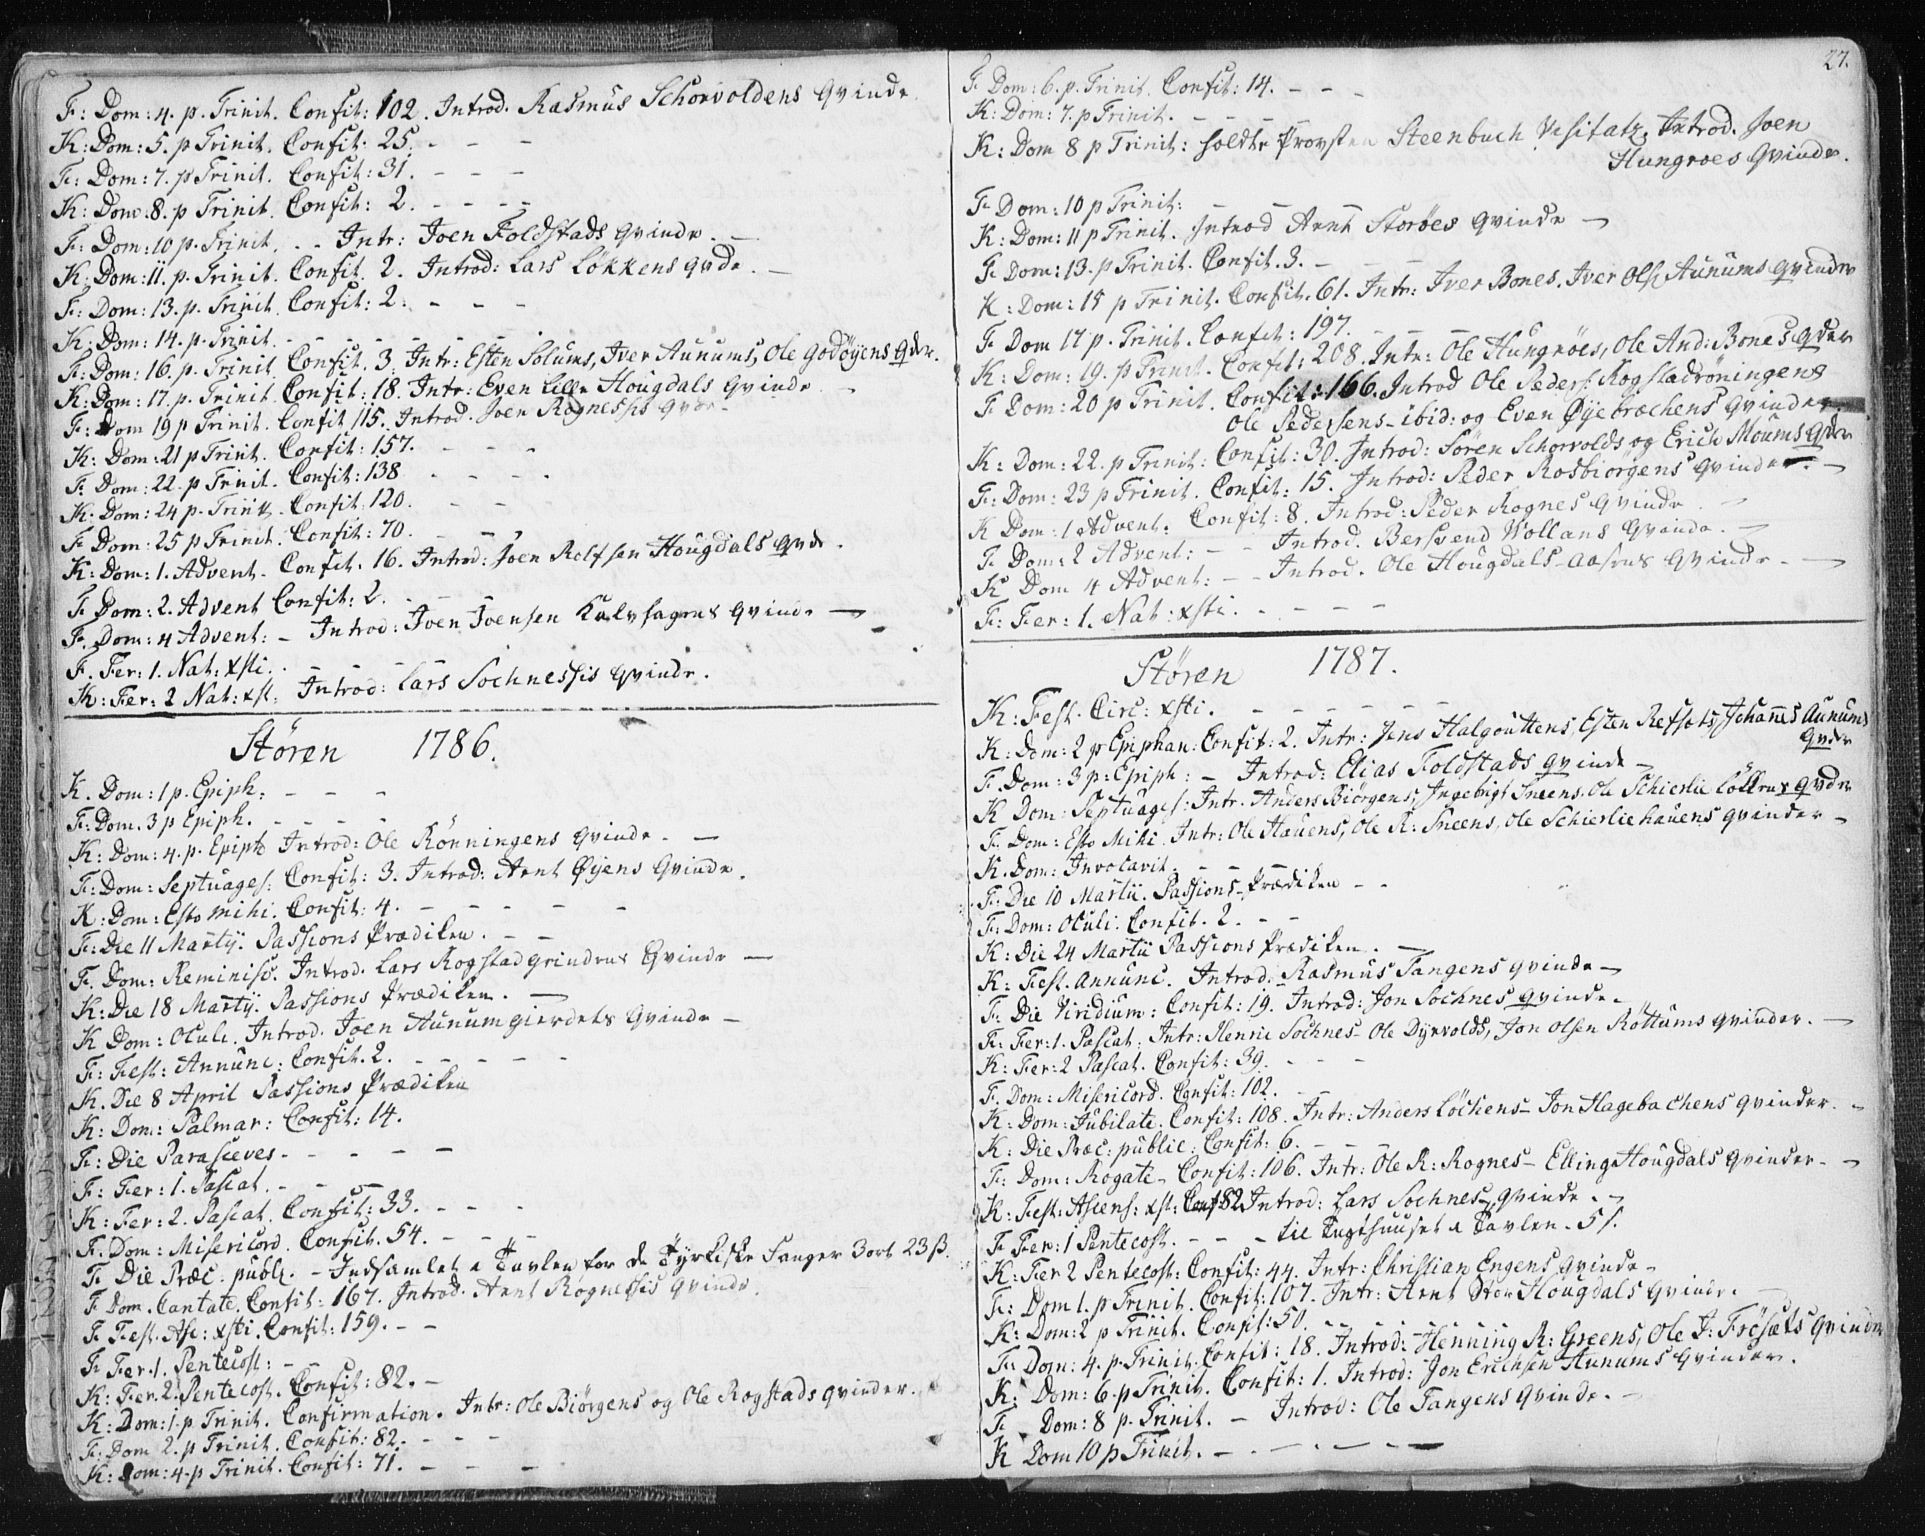 F: Dom: 4. p. Trinit. Confit: 102. Introd. Rasmus Schorvoldens Qvinde
K: Dom: 5. p Trinit. Confit: 25. - - -
F: Dom: 7. p Trinit. Confit: 31. - - -
K: Dom: 8. p Trinit. Confit: 2. - - - -
F: Dom: 10 p. Trinit. - - Intr: Joen Foldstads Qvinde. -
K: Dom: 11. p. Trinit. Confit. 2. Introd: Lars Løkkens Qvde. -
F: Dom: 13. p. Trinit. Confit: 2. - - -
K: Dom: 14. p. Trinit. - - - - - -
F: Dom: 16. p. Trinit. Confit. 3. Intr: Esten Solums, Iver Aunums, Ole Godøyens Qvdr.
K: Dom: 17. p. Trinit. Confit: 18. Intr: Even Lille Hougdals Qvinde -
F: Dom 19 p Trinit. Confit 115. Introd. Joen Rognessis Qvde -
K: Dom: 21 p Trinit. Confit: 157. - - -
F: Dom: 22. p Trinit. Confit: 138 - - - -
K: Dom: 24 p. Trinit. Confit: 120. - - -
F Dom: 25 p Trinit. Confit: 70. - - -
K: Dom: 1. Advent. Confit. 16. Introd: Joen Rolfsen Hougdals Qvde.
F Dom: 2. Advent Confit: 2. - - -
F. Dom: 4 Advent: - Introd: Joen Joensen Kalvhagens Qvinde -
F. Fer: 1. Nat: xsti. - - - -
K: Fer: 2 Nat: xst. Introd: Lars Sochnessis Qvinde.
Støren 1786.
K. Dom: 1 p. Epiph: - - -
F: Dom. 3 p Epiph. - - - -
K: Dom: 4. p. Epiph Introd: Ole Rønningens Qvinde. -
F: Dom: Septuages: Confit: 3. Introd: Arnt Øyens Qvinde.
K: Dom: Esto mihi. Confit: 4. - - - - -
F: Die 11 Martij. Passions Prædiken. - -
F. Dom: Reminisc. Introd. Lars Rogstadgrindens Qvinde -
K: Die 18 Martij. Passions Prædiken. -
K Dom: Oculi. Introd. Joen Aunumgierdets Qvinde -
F: Fest: Annunc: Confit. 2. - - - - -
K. Die 8 April Passions Prædiken
K: Dom: Palmar: Confit: 14.
F: Die Parasceves - - - - -
F: Fer: 1. Pascat. - - -
K: Fer: 2. Pascat. Confit: 33. - - -
F. Dom: Misericord. Confit. 54. - - -
F Die Præc. publ. - Indsamlet i Tavlen for de Tyrkiske Fanger 3 ort 23 ß.
F Dom. Cantate. Confit: 167. Introd. Arnt Rognessis Qvinde.
F Fest. Asc: xsti. Confit: 159. - -
F Fer. 1. Pentecost: -
K: Fer. 2. Pentecost. Confit: 82. -
K: Dom: 1. p Trinit. Confirmation. Intr: Ole Biørgens og Ole Rogstads Qvinder.
F: Dom 2. p Trinit. Confit: 82. - - -
K: Dom: 4. p Trinit. Confit: 71. - - -
27.
F Dom: 6. p. Trinit. Confit: 14. - - -
K: Dom: 7. p Trinit. - - - -
K: Dom 8 p Trinit: holdte Provsten Steenbuch Visitatz. Introd. Joen
Hungroes Qvinde.
F Dom: 10 p Trinit: - - - -
K: Dom: 11 p Trinit. Introd Arnt Storøes Qvinde -
F Dom: 13. p Trinit. Confit. 3. - - -
K: Dom: 15 p Trinit. Confit. 61. Intr: Iver Bones. Iver Ols: Aunums Qvinder
F Dom 17 p. Trinit. Confit: 197. - - -
K: Dom: 19. p Trinit. Confit: 208. Intr: Ole Hungrøes, Ole And: Bones Qvder
F Dom: 20 p Trinit. Confit: 166. Introd Ole Peders: Rogstadrøningens
Ole Pedersens ibid: og Even Øyebrechens Qvinder.
K: Dom: 22. p Trinit: Confit: 30. Introd: Søren Schorvolds og Erich Moums Qvdr
F: Dom: 23 p Trinit. Confit: 15. Introd: Peder Rosbiørgens Qvinde -
K Dom: 1 Advent. Confit: 8. Introd: Peder Rognes Qvinde -
F Dom: 2 Advent: - - Introd. Bersvend Wollans Qvinde. -
K Dom 4 Advent: - - Introd. Ole Hougdals-Aasens Qvinde - -
F: Fer: 1. Nat: xsti. - - - -
Støren 1787.
K: Fest. Circ: xsti. - - - - - -
K: Dom: 2 p Epiphan: Confit: 2. Intr: Jens Halgouttens, Esten Refsets, Johañes Aunums
Qvdr
F. Dom: 3 p: Epiph: - Introd: Elias Foldstads Qvinde -
K Dom: Septuages: Intr. Anders Biørgens, Ingebrigt Sneens. Ole Schierlie Løkkens Qvdr
F. Dom: Esto Mihi. Intr: Ole Hauens, Ole R: Sneens, Ole Schierliehauens Qvinder -
K. Dom: Invocavit. - - - -
F: Die 10 Martii. Passions-Prædiken - -
F: Dom: Oculi. Confit. 2. - -
K: Die 24 Martii Passions Prædiken. -
K: Fest. Annunc. Introd: Rasmus Tangens Qvinde -
F: Die Viridium: Confit: 19. Introd: Jon Sochnes Qvinde.
F: Fer: 1. Pascat: Intr: Henric Sochnes - Ole Dyrvolds, Jon Olsen Rottums Qvinder. -
K: Fer: 2 Pascat. Confit: 39. - - -
F. Dom: Misericord. Confit: 102. -
K: Dom: Jubilate. Confit: 108. Intr: Anders Løckens - Jon Hagebachens Qvinder. -
K: Die Præc: public: Confit: 6. - - - -
F: Dom: Rogate - Confit: 106. Intr: Ole R: Rognes - Elling Hougdals Qvinder - -
K: Fest: Ascens: xst: Conf 82 Introd: Lars Sochnes Qvinde. -
F Fer: 1 Pentecost. - - - til Tugthuuset i Tavlen - 5 s.
K: Fer 2 Pentecost: Confit: 44. Intr: Christian Engens Qvinde -
F: Dom 1. p Trinit. Confit: 107. Intr: Arnt Stor Hougdals Qvinde. -
K: Dom: 2 p Trinit. Confit: 50. - - - - - -
F: Dom: 4. p. Trinit. Confit: 18. Introd: Henning R: Greens, Ole J: Frøsæts Qvinder
K: Dom: 6. p Trinit. Confit: 1. Introd: Jon Erichsen Aunums Qvinder.
F Dom: 8 p. Trinit. - Introd: Ole Tangens Qvinde. -
K Dom 10 p Trinit. - - - - -